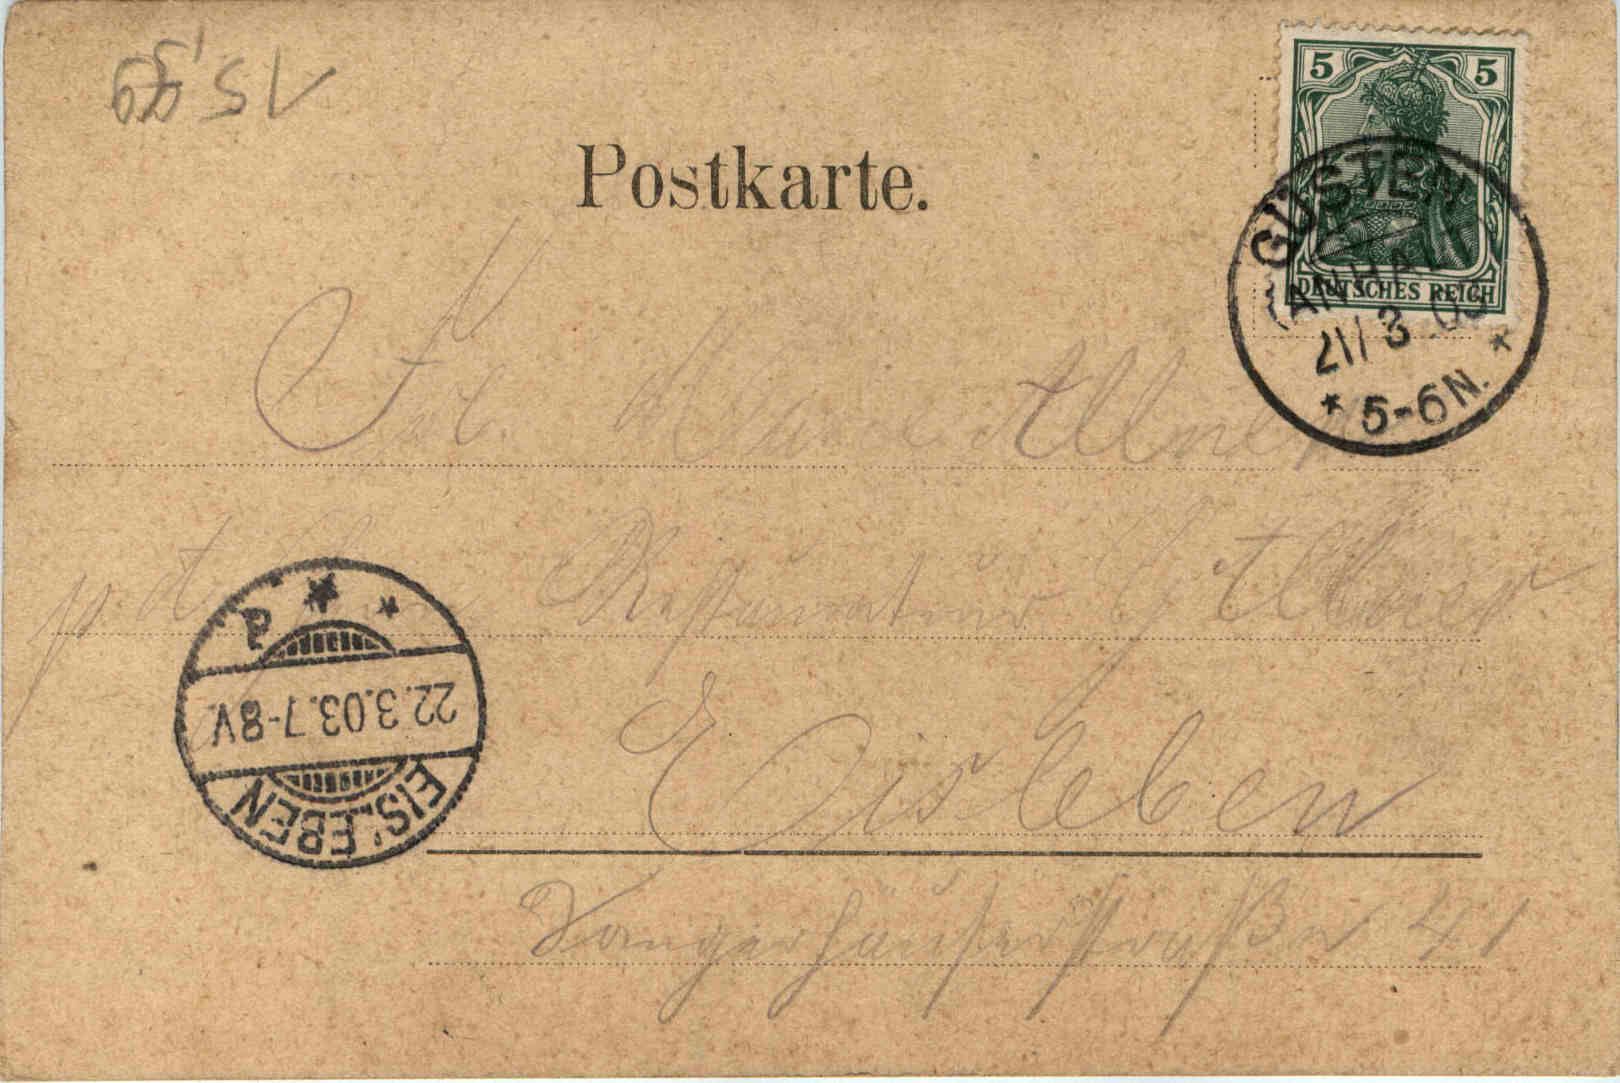 Postkarte.
5 5
DEUTSCHES REICH
GÜSTEN
(ANHALT)
21/3 03
* 5-6N. *
Frl. Marie Allner
p. Restaurateur Allner
Eisleben
Sangerhäuserstraße 41
EISLEBEN
22.3.03.7-8V.
* P *